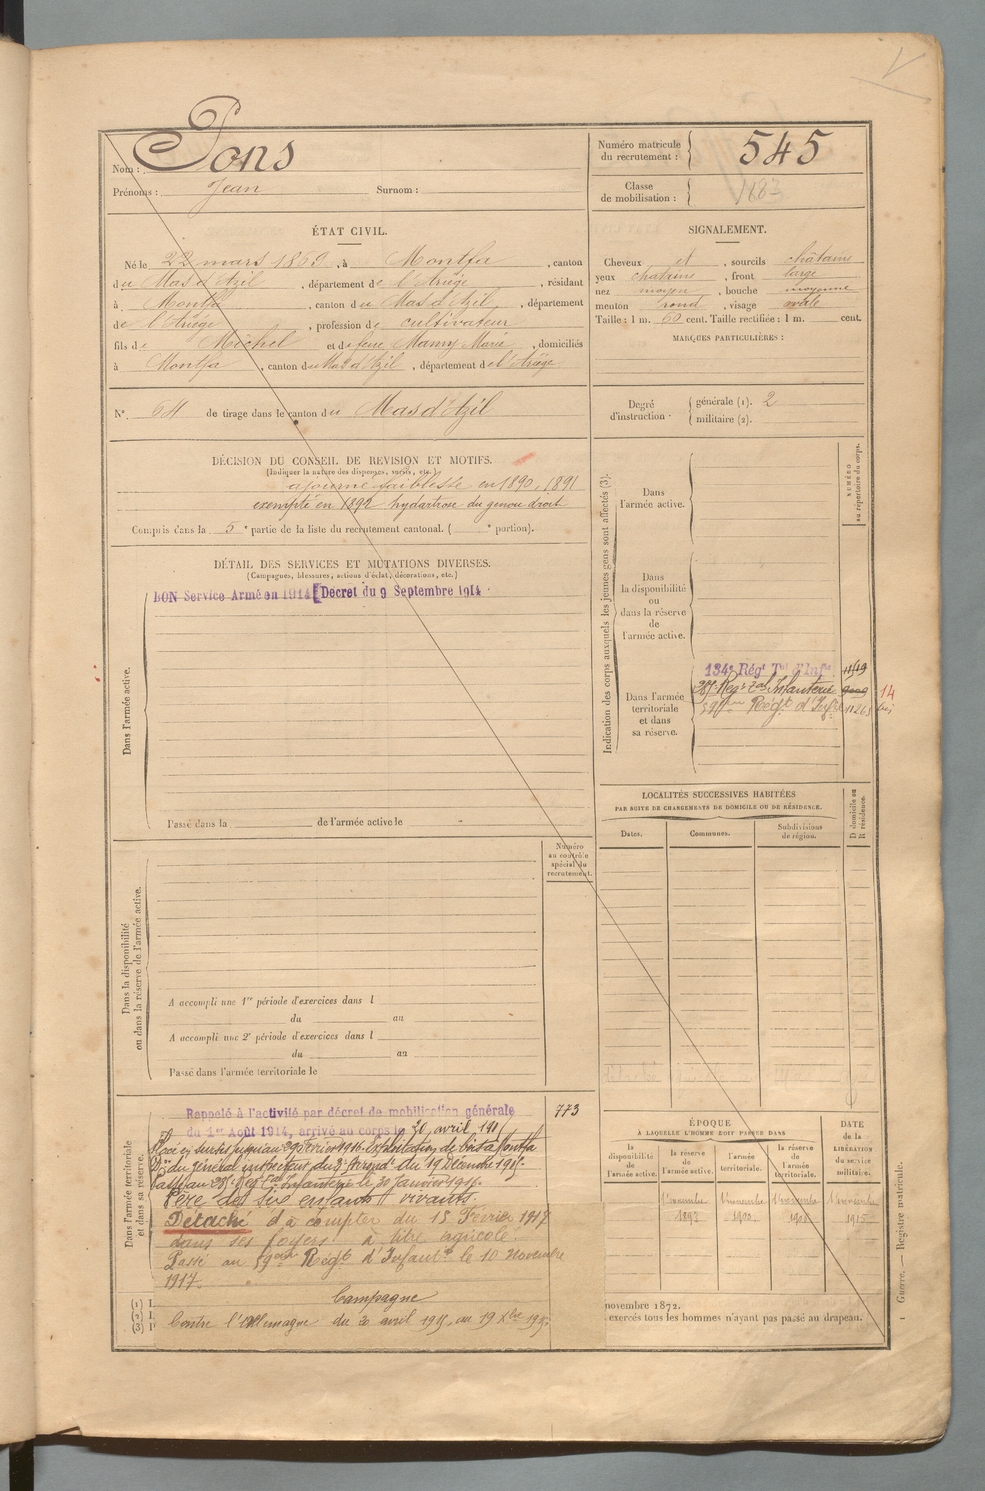 Nom : Pons
Prénoms : Jean Surnom :
Numéro matricule du recrutement : 545
Classe de mobilisation : 1887
ÉTAT CIVIL.
Né le 22 mars 1869, à Montfa, canton
du Mas d'Azil, département de l'Ariège, résidant
à Montfa, canton du Mas d'Azil, département
de l'Ariège, profession de cultivateur
fils de Michel et de feue Mamy Marie, domiciliés
à Montfa, canton du Mas d'Azil, département de l'Ariège
N° 64 de tirage dans le canton du Mas d'Azil
SIGNALEMENT.
Cheveux et, sourcils châtains
yeux chatains, front large
nez moyen, bouche moyenne
menton rond, visage ovale
Taille : 1 m. 60 cent. Taille rectifiée : 1 m. cent.
MARQUES PARTICULIÈRES :
Degré d'instruction . générale (1). 2
militaire (2).
DÉCISION DU CONSEIL DE REVISION ET MOTIFS.
(Indiquer la nature des dispenses, sursis, etc.)
ajourné faiblesse en 1890, 1891
exempté en 1892 hydartrose du genou droit
Compris dans la 5e partie de la liste du recrutement cantonal. ( e portion).
DÉTAIL DES SERVICES ET MUTATIONS DIVERSES.
(Campagnes, blessures, actions d'éclat, décorations, etc.)
BON Service Armé en 1914 [Décret du 9 Septembre 1914
Dans l'armée active.
Passé dans la de l'armée active le
Indication des corps auxquels les jeunes gens sont affectés (3).
NUMÉRO au répertoire du corps.
Dans l'armée active.
Dans la disponibilité ou dans la réserve de l'armée active.
Dans l'armée territoriale et dans sa réserve.
134e Régt Tal d'Infie
Regt tal Infanterie
59ème Régt d'Inf. 11263
14 bis
LOCALITÉS SUCCESSIVES HABITÉES
PAR SUITE DE CHANGEMENTS DE DOMICILE OU DE RÉSIDENCE.
Dates. Communes. Subdivisions de région. D domicile ou R résidence.
Dans la disponibilité ou dans la réserve de l'armée active.
Numéro au contrôle spécial du recrutement.
A accompli une 1re période d'exercices dans l
du au
A accompli une 2e période d'exercices dans l
du au
Passé dans l'armée territoriale le
Dans l'armée territoriale et dans sa réserve.
773
Rappelé à l'activité par décret de mobilisation générale
du 1er Août 1914, arrivé au corps le 30 avril 191
Placé en sursis jusqu'au 29 Février 1916. Exploitation de bois à Montfa
Don du Général inspecteur du 3e Arrond. du 19 Décembre 1915.
Passé au Reg. tal Infanterie le 30 janvier 1915.
Père de six enfants vivants.
Détaché d'à compter du 15 Février 1917
dans ses foyers à titre agricole.
Passé au 59ème Régt d'Infantie le 10 Novembre
1917.
Campagne
Contre l'Allemagne du 30 avril 1915 au 19 Xbre 1915
(1) I
(2) I
(3) I
ÉPOQUE
À LAQUELLE L'HOMME DOIT PASSER DANS
la disponibilité de l'armée active.
la réserve de l'armée active.
l'armée territoriale.
la réserve de l'armée territoriale.
DATE de la LIBÉRATION du service militaire.
1 novembre 1893 1 novembre 1900 1 novembre 1 novembre 1915
novembre 1872.
exercés tous les hommes n'ayant pas passé au drapeau.
Guerre. — Registre matricule.